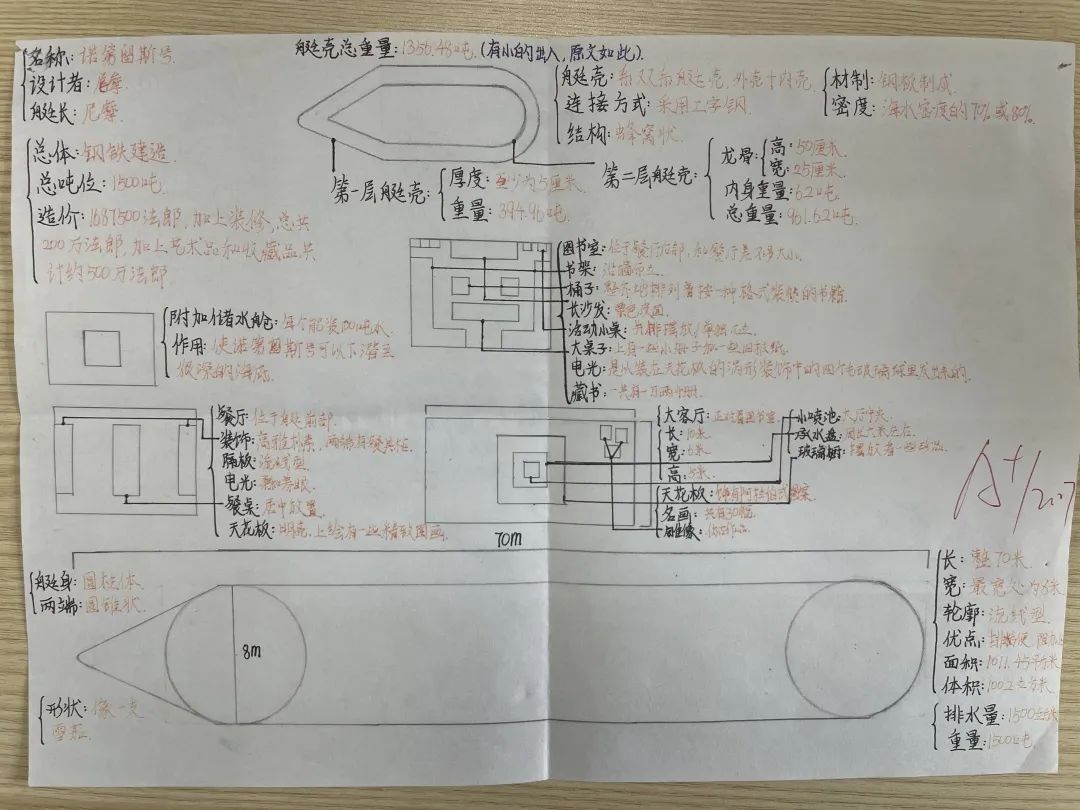 名称: 诺第留斯号.
设计者: 尼摩.
艇长: 尼摩.
艇壳总重量: 1356.48吨. (有小的出入, 原文如此).
艇壳: 系双系艇壳, 外壳十内壳.
连接方式: 采用工字钢.
结构: 蜂窝状.
材制: 钢板制成.
密度: 海水密度的70%或80%.
总体: 钢铁建造.
总吨位: 1500吨.
造价: 1687500法郎, 加上装修, 总共
200万法郎, 加上艺术品和收藏品, 共
计约500万法郎.
第一层艇壳:
厚度: 至少为5厘米.
重量: 394.96吨.
第二层艇壳:
龙骨:
高: 50厘米.
宽: 25厘米.
内身重量: 62吨.
总重量: 961.62吨.
附加储水舱: 每个能装100吨水.
作用: 使诺第留斯号可以下潜至
很深的海底.
图书室: 位于餐厅后部, 和餐厅是不多大小.
书架: 沿墙而立.
桶子: 整齐地排列着按一种格式装帧的书籍.
长沙发: 栗色皮面.
活动小桌:
大桌子: 上有一些小册子和一些旧报纸.
电光: 是从装在天花板的涡形装饰中的四个毛玻璃球里发出来的.
藏书: 一共有一万两千册.
餐厅: 位于艇前部.
装饰: 高雅朴素,
隔板: 流线型.
电光:
餐桌: 居中放置.
天花板: 明亮, 上绘有一些精致图画.
大客厅: 正对着图书室.
长: 10米.
宽: 6米.
高: 5米.
天花板: 饰有阿拉伯式图案.
名画: 共有30幅.
雕像:
小喷池: 大厅中央.
承水盘: 周长六米左右.
玻璃橱: 摆放着一些珍品.
A+/2.7
70m
艇身: 圆柱体.
两端: 圆锥状.
8m
形状: 像一支
雪茄.
长: 整70米.
宽: 最宽处为8米.
轮廓: 流线型.
优点:
面积: 1011.45平方米.
体积: 1500.2立方米.
排水量: 1500立方米.
重量: 1500吨.